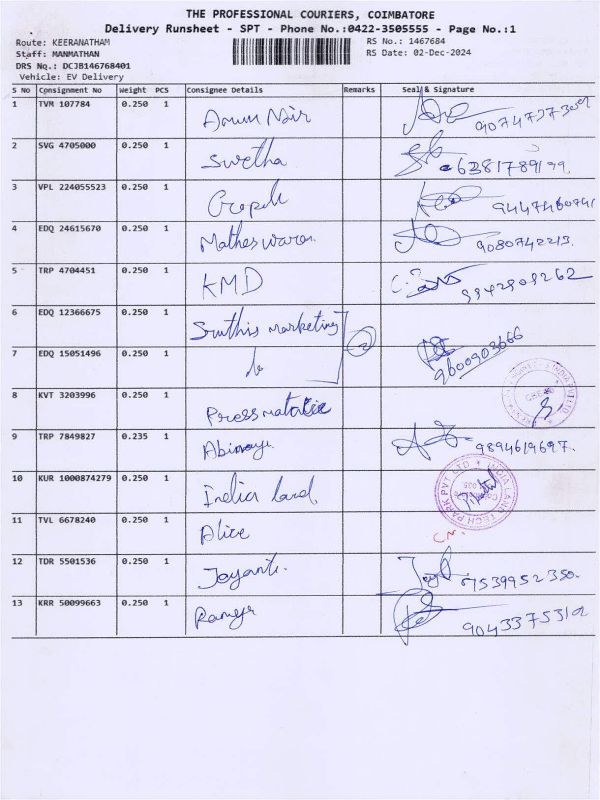 THE PROFESSIONAL COURIERS, COIMBATORE
Delivery Runsheet - SPT - Phone No.:0422-3505555 - Page No.:1
Route: KEERANATHAM
RS No.: 1467684
Staff: MANMATHAN
RS Date: 02-Dec-2024
DRS No.: DCJB146768401
Vehicle: EV Delivery
S No Consignment No Weight PCS Consignee Details Remarks Seal & Signature
1 TVM 107784 0.250 1 Arun Nair
2 SVG 4705000 0.250 1 Swetha
3 VPL 224055523 0.250 1 9447460741
4 EDQ 24615670 0.250 1 Matheswaran 9080742213
5 TRP 4704451 0.250 1 KMD 9942909262
6 EDQ 12366675 0.250 1 marketing 2
7 EDQ 15051496 0.250 1 9600903666
8 KVT 3203996 0.250 1
9 TRP 7849827 0.235 1 Abinaya 9894619697.
10 KUR 1000874279 0.250 1 India land
INDIA LAND TECH PARK PVT LTD
11 TVL 6678240 0.250 1 Alice
12 TDR 5501536 0.250 1 Jayanti. 7539952350.
13 KRR 50099663 0.250 1 Ramya